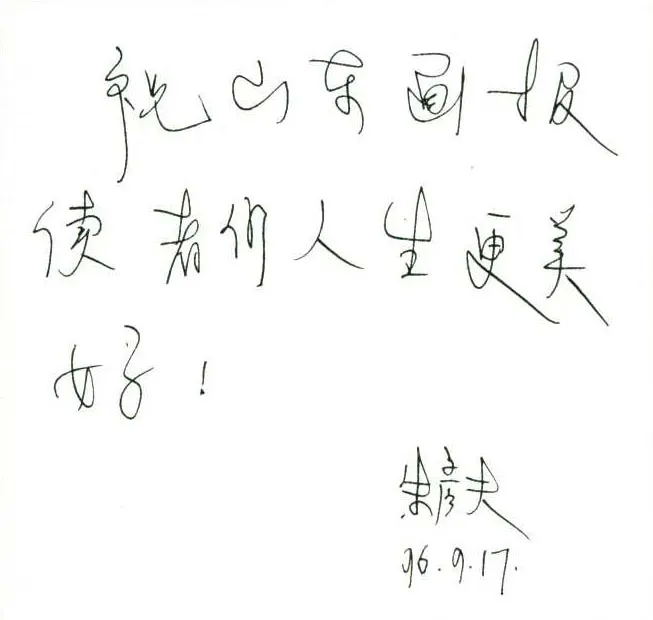 祝山东画报
读者们人生更美
好！
朱彦夫
96.9.17.